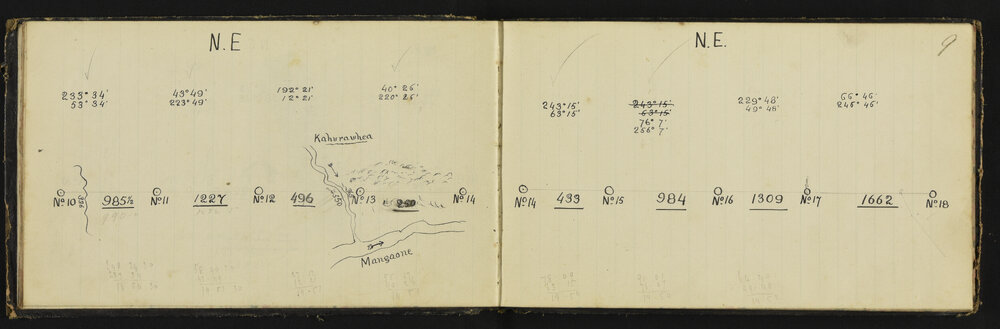 N.E
233° 34'
53° 34'
43° 49'
223° 49'
192° 21'
12° 21'
40° 26'
220° 26'
Kahurawhea
No 10
985½
No 11
1227
No 12
496
No 13
No 14
Mangaone
N.E.
9
243° 15'
63° 15'
243° 15'
63° 15'
76° 7'
256° 7'
229° 48'
49° 48'
66° 46'
246° 46'
No 14
433
No 15
984
No 16
1309
No 17
1662
No 18